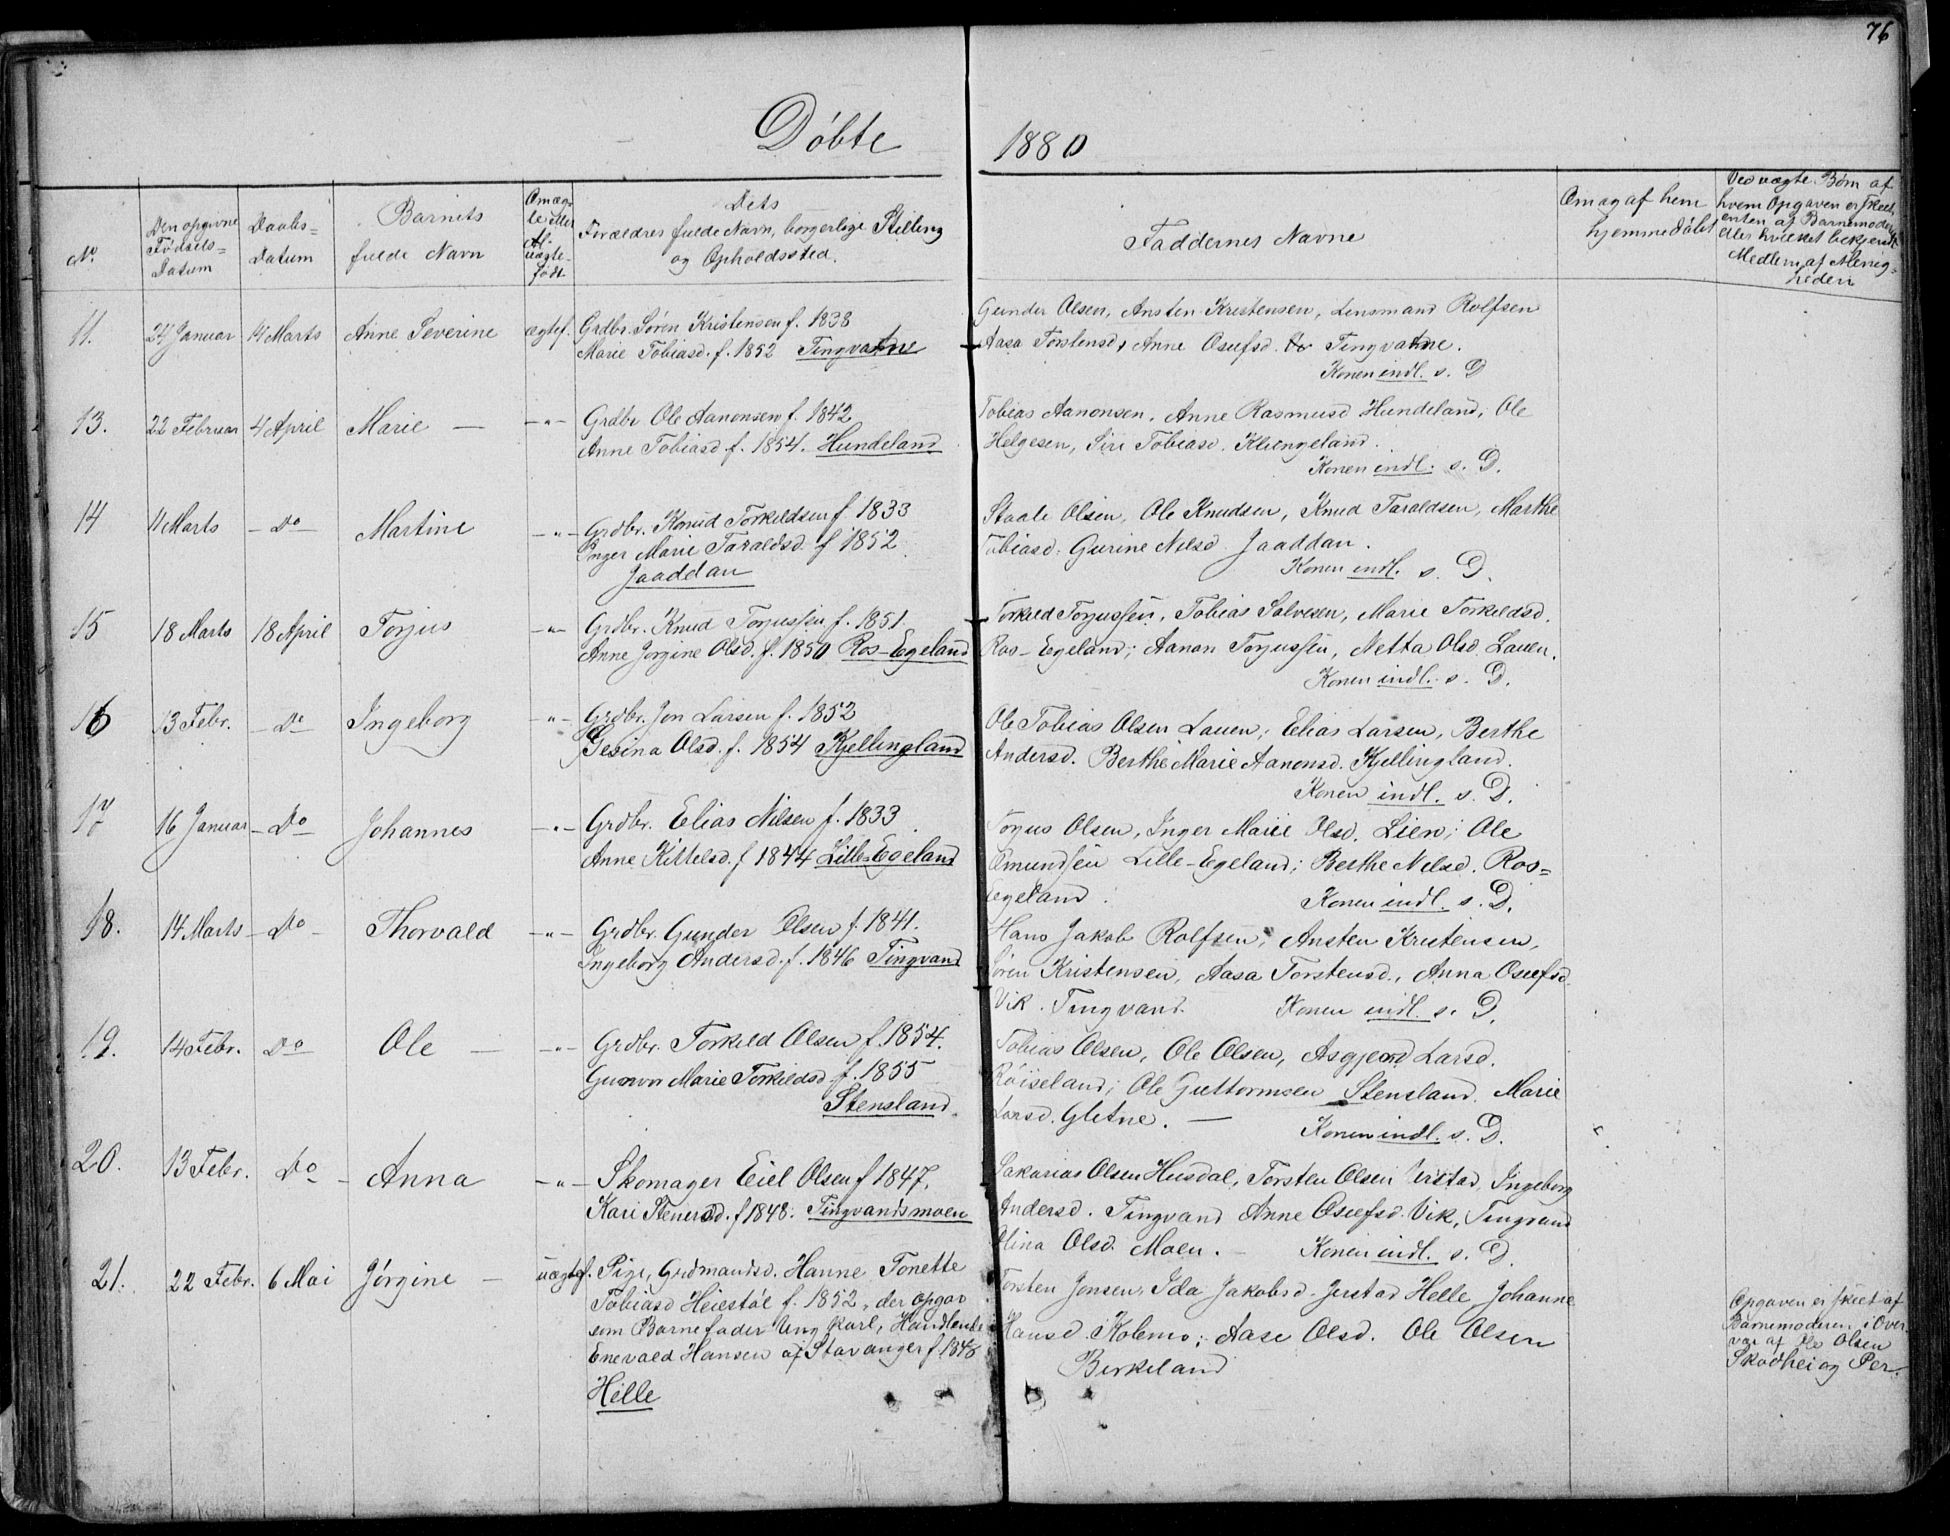 76
Döbte 1880
No.
Den opgivne
Födsels=
Datum
Daabs=
Datum
Barnets
fulde Navn
Om æg-
te eller
uægte-
født
Dets
Forældres fulde Navn, borgerlige Stilling
og Opholdssted.
Faddernes Navne
Om og af hvem
hjemmedöbt
Ved uægte Börn af
hvem Opgaven er skeet,
enten af Barnemoder
eller hvilket bekjendt
Medlem af Menig=
heden
11. 24 Januar 14 Marts Anne Severine ægtef. Grdbr. Sören Kristensen f. 1838
Marie Tobiasd. f. 1852 Tingvatne
Gunder Olsen, Ansten Kristensen, Lensmand Rolfsen
Aasa Torstensd, Anne Oseefsd. Tingvatne.
Konen indl. s. D
13. 22 Februar 4 April Marie — -"- Grdbr Ole Aanonsen f. 1842
Anne Tobiasd f. 1854. Hundeland
Tobias Aanonsen, Anne Rasmusd Hundeland; Ole
Helgesen, Siri Tobiasd. Kleengeland.
Konen indl. s. D.
14 11 Marts - Do - Martine -"- Grdbr. Knud Torkildsen f 1833
Inger Marie Taraldsd. f 1852.
Jaaddan
Staale Olsen, Ole Knudsen, Knud Taraldsen, Marthe
Tobiasd. Gurine Nelsd. Jaaddan.
Konen indl. s. D.
15 18 Marts 18 April Torjus -"- Grdbr. Knud Torjussen f. 1851
Anne Jorgine Olsd. f. 1850 Ros-Egeland
Torkild Torjussen, Tobias Salvesen, Marie Torkildsd.
Ros-Egeland; Aanon Torjussen, Netta Olsd. Lauen.
Konen indl. s. D.
16 13 Febr. - Do - Ingeborg -"- Grdbr. Jon Larsen f. 1852
Gesina Olsd. f. 1854 Kjellingland
Ole Tobias Olsen Lauen; Elias Larsen, Berthe
Andersd. Berthe Marie Aanonsd. Kjellingland.
Konen indl. s. D.
17 16 Januar - Do - Johannes -"- Grdbr. Elias Nilsen f. 1833
Anne Kittelsd. f 1844 Lille-Egeland
Torjus Olsen, Inger Marie Olsd. Lien; Ole
Omundsen Lille-Egeland; Berthe Nelsd. Ros=
egeland. Konen indl. s. D.
18. 14 Marts - Do - Thorvald -"- Grdbr. Gunder Olsen f. 1841.
Ingeborg Andersd. f. 1846 Tingvand
Hans Jakob Rolfsen, Ansten Kristensen,
Sören Kristensen, Aasa Torstensd., Anna Oseefsd.
Vik. Tingvand. Konen indl. s. D.
19. 14 Febr. Do Ole — -"- Grdbr. Torkild Olsen f. 1854.
Gunvor Marie Torkildsd f. 1855
Stensland.
Tobias Olsen, Ole Olsen, Asgjerd Larsd.
Röiseland; Ole Guttormsen Stensland. Marie
Larsd. Gletne. — Konen indl. s. D.
20. 13 Febr. Do - Anna -"- Skomager Eiel Olsen f 1847.
Kari Stenersd. f 1848. Tingvandsmoen
Sakarias Olsen Husdal, Torsten Olsen Jerstad, Ingeborg
Andersd. Tingvand Anne Oseefsd. Vik, Tingvand
Olina Olsd. Moen. - Konen indl. s. D.
21. 22 Febr. 6 Mai Jörgine — uægtef. Pige, Grdmandsd. Hanne Tonette
Tobiasd Heiestöl f. 1852, der opgav
som Barnefader Ung karl, Handlende
Enevald Hansen af Stavanger f. 1848
Helle
Torsten Jonsen, Ida Jakobsd. Jerstad Helle, Johanne
Hansd. Kolemo; Aase Olsd. Ole Olsen
Birkeland
Opgaven er skeet af
Barnemoderen i Over
vær af Ole Olsen
Skodhei og Per.